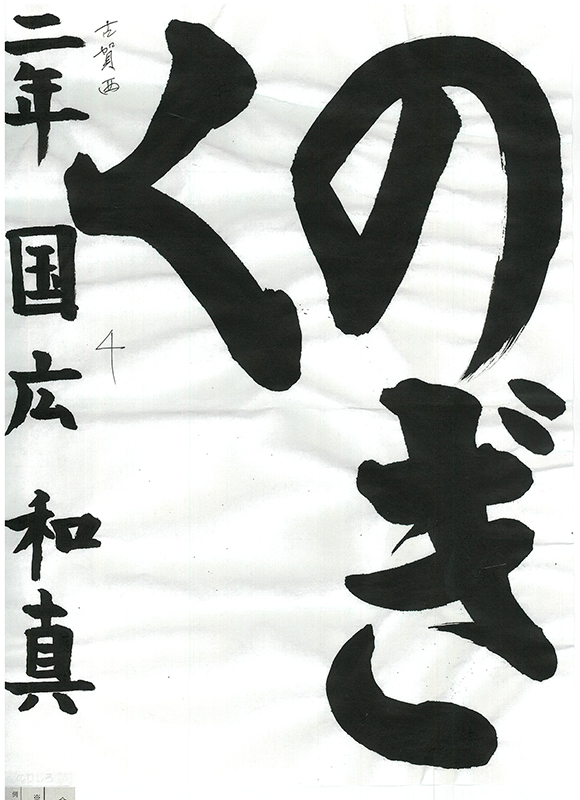 のぎ
く
二年 国広 和真
古賀西
4